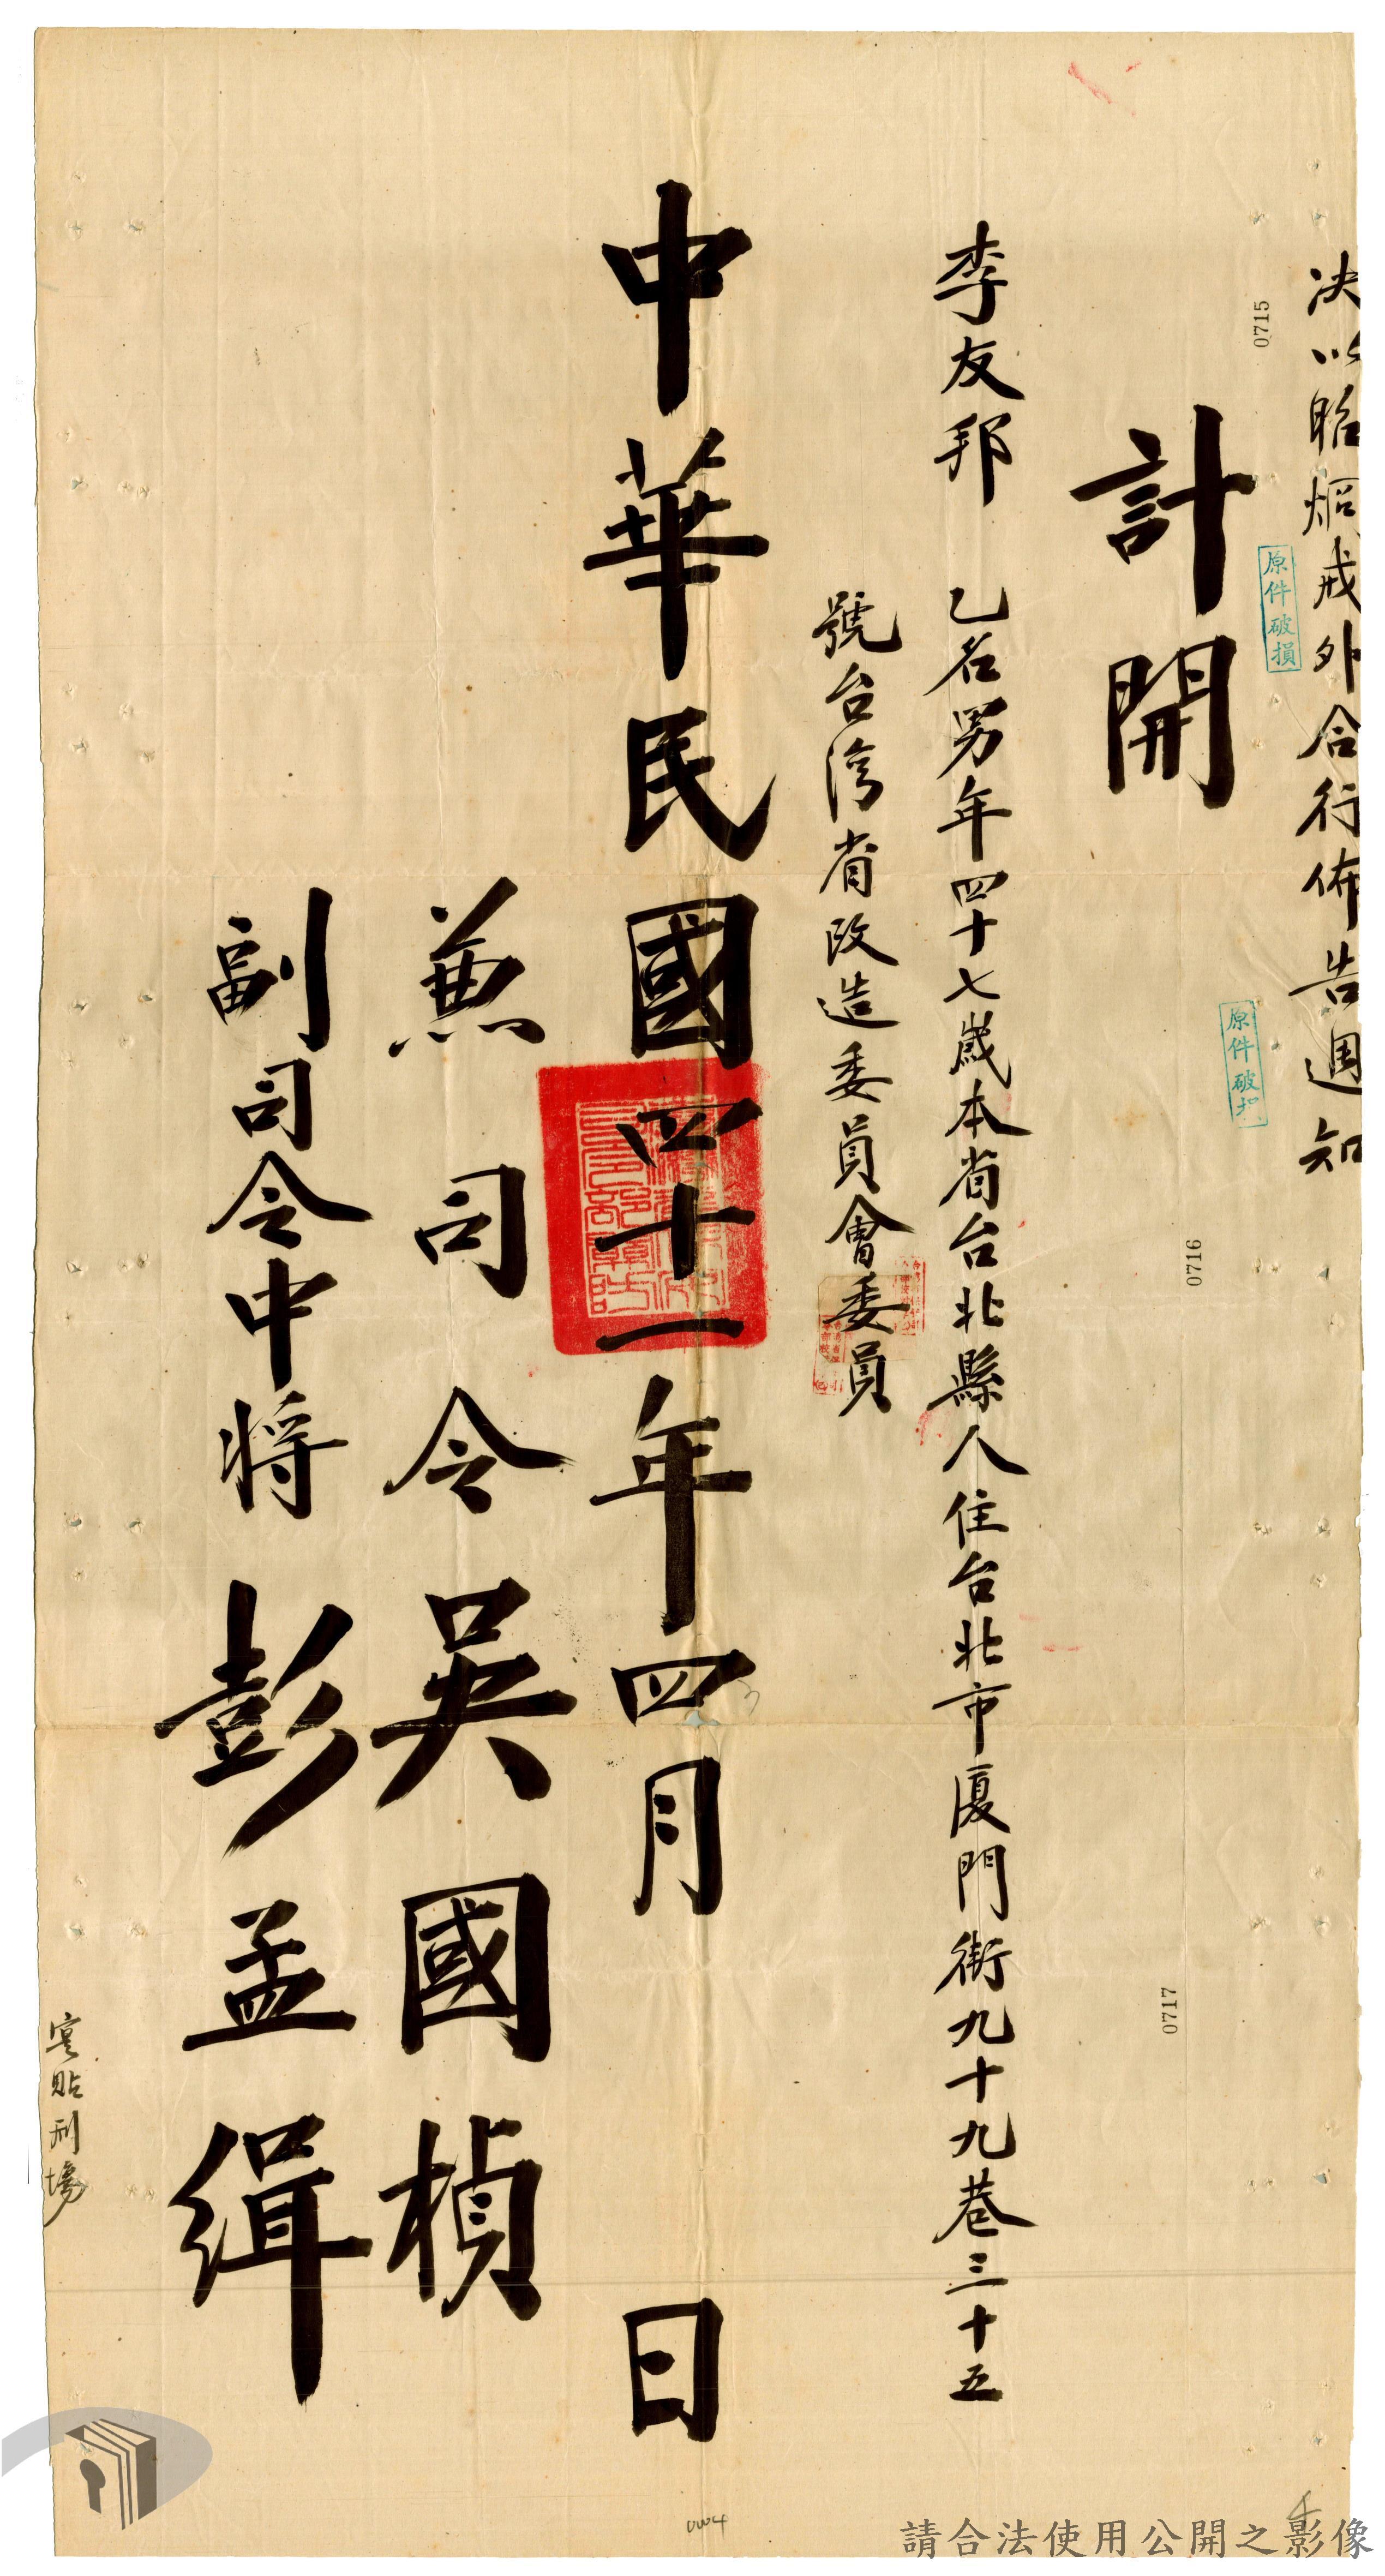 決以昭烱戒外合行佈告週知
計開
李友邦 乙名男年四十七歲本省台北縣人住台北市廈門街九十九巷三十五
號台湾省改造委員會委員
中華民國四十一年四月 日
兼司令吳國楨
副司令中將彭孟緝
實貼刑場
原件破損
原件破損
0715
0716
0717
0004
請合法使用公開之影像